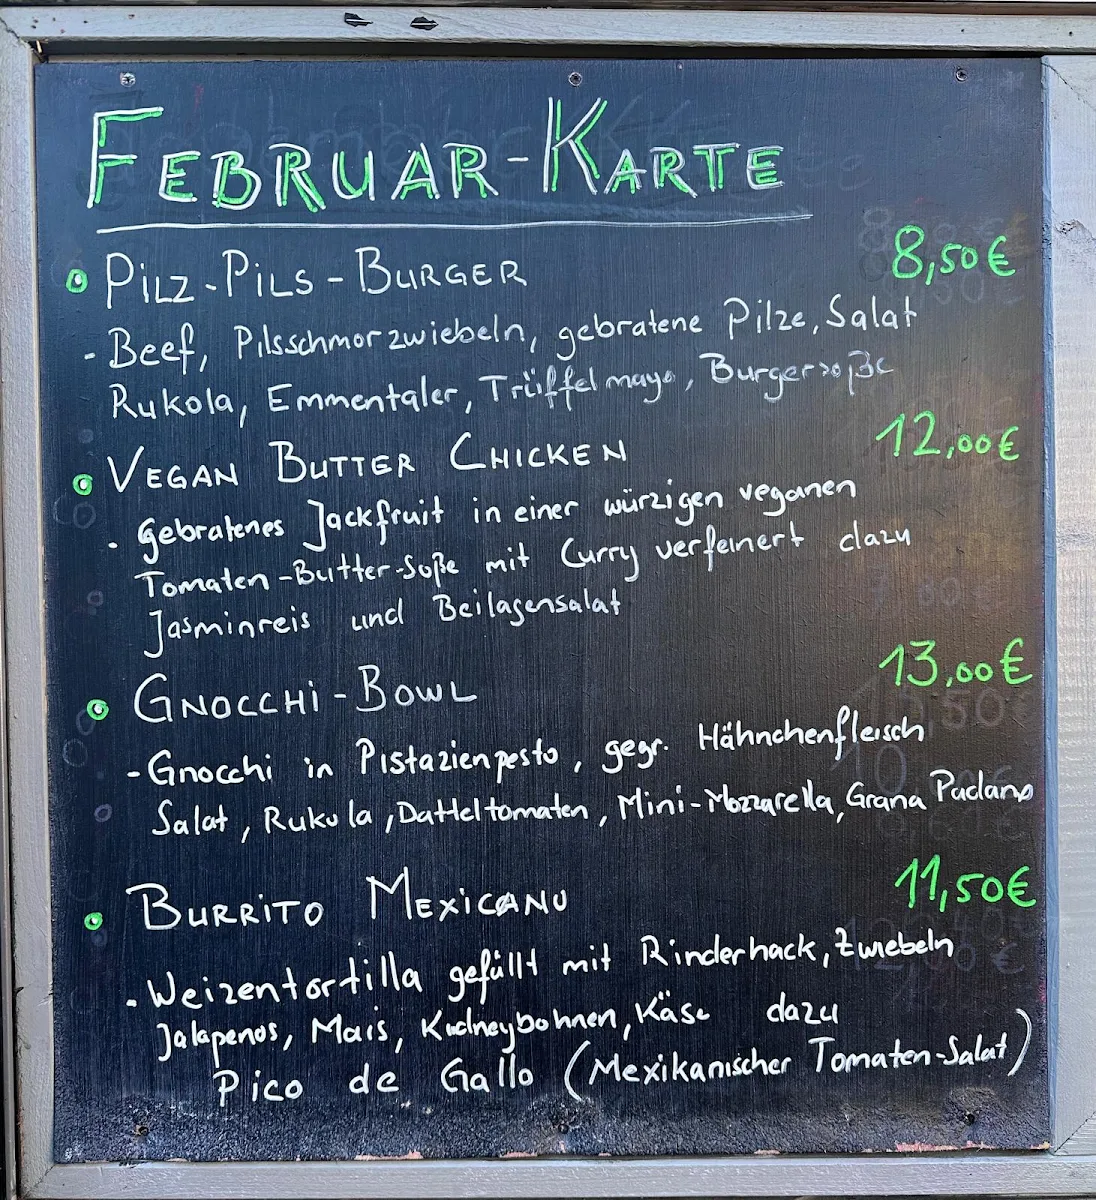 FEBRUAR-KARTE
• PILZ-PILS-BURGER 8,50€
- Beef, Pilsschmorzwiebeln, gebratene Pilze, Salat
Rukola, Emmentaler, Trüffelmayo, Burgersoße
• VEGAN BUTTER CHICKEN 12,00€
- gebratenes Jackfruit in einer würzigen veganen
Tomaten-Butter-Soße mit Curry verfeinert dazu
Jasminreis und Beilagensalat
• GNOCCHI-BOWL 13,00€
- Gnocchi in Pistazienpesto, gegr. Hähnchenfleisch
Salat, Rukula, Datteltomaten, Mini-Mozzarella, Grana Padano
• BURRITO MEXICANO 11,50€
- Weizentortilla gefüllt mit Rinderhack, Zwiebeln
Jalapenos, Mais, Kidneybohnen, Käse dazu
Pico de Gallo (Mexikanischer Tomaten-Salat)